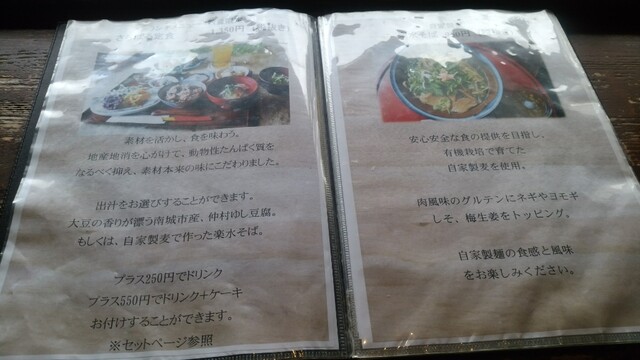 定食
素材を活かし、食を味わう。
地産地消を心がけて、動物性たんぱく質を
なるべく抑え、素材本来の味にこだわりました。
出汁をお選びすることができます。
大豆の香りが漂う南城市産、仲村ゆし豆腐。
もしくは、自家製麦で作った楽水そば。
プラス250円でドリンク
プラス550円でドリンク+ケーキ
お付けすることができます。
※セットページ参照
安心安全な食の提供を目指し、
有機栽培で育てた
自家製麦を使用。
肉風味のグルテンにネギやヨモギ
しそ、梅生姜をトッピング。
自家製麺の食感と風味
をお楽しみください。